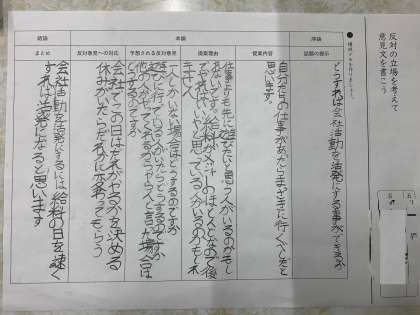 反対の立場を考えて
意見文を書こう
● 構成メモを書きましょう。
序論
本論
結論
話題の提示
提案内容
提案理由
予想される反対意見
反対意見への対応
まとめ
どうすれば会社活動を活発にする事ができるか
自分たちの仕事があったらまっさきに行くべしだと
思います。
仕事よりも先に遊びたいと思う人がいるのかもし
れないです。給料が
でやればいいと思っている人がいるのかもしれ
ません
一人しかいない場合はどうするのですか
遊びに行っている人がいたらどうするのですか
他の人がやってくれるのでやらんと言った場合は
会社でこの日はだれがやるかを決める
休みがいたらだれかに変わってもらう
会社活動を活発にするには給料の日を速く
すれば活発になると思います